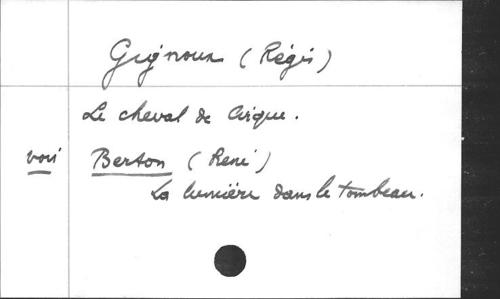 Gignoux (Régis)
Le cheval de Cirque.
voir Berton (René)
La lumière dans le tombeau.